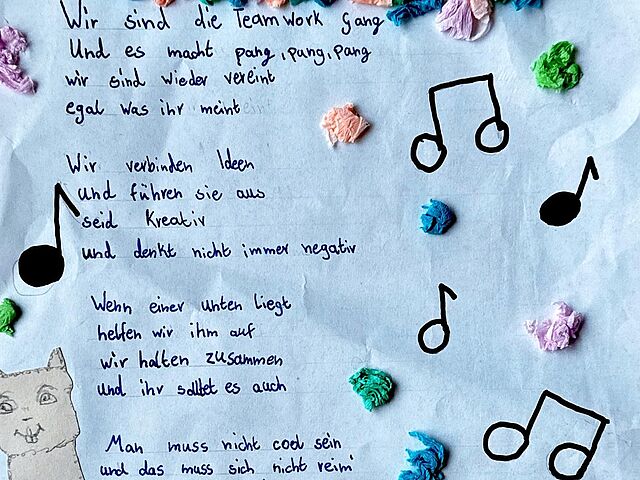 Wir sind die Teamwork Gang
Und es macht pang, pang, pang
wir sind wieder vereint
egal was ihr meint
Wir verbinden Ideen
und führen sie aus
seid Kreativ
und denkt nicht immer negativ
Wenn einer unten liegt
helfen wir ihm auf
wir halten zusammen
und ihr solltet es auch
Man muss nicht cool sein
und das muss sich nicht reim'